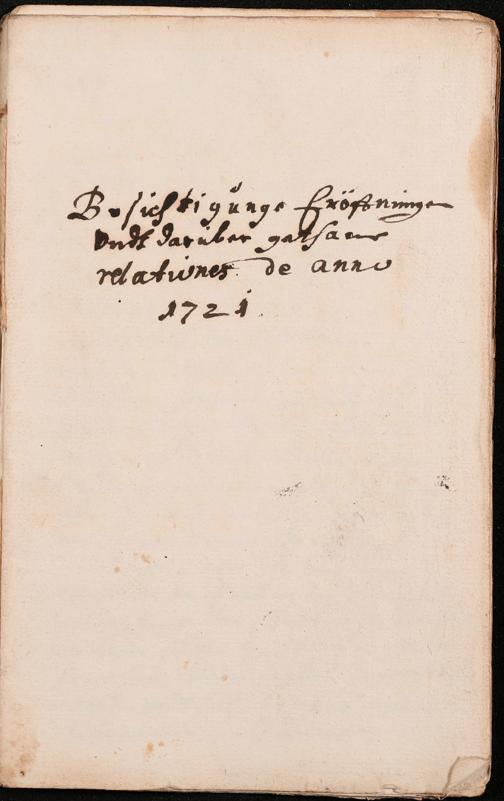 Besichtigunge Eröffnunge
Vndt darüber gethane
relationes de anno
1721.